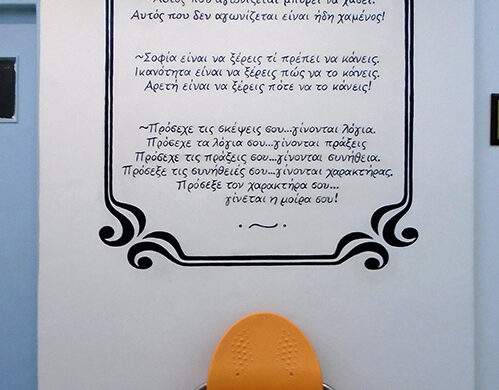 Αυτός που αγωνίζεται μπορεί να χάσει.
Αυτός που δεν αγωνίζεται είναι ήδη χαμένος!
~Σοφία είναι να ξέρεις τί πρέπει να κάνεις.
Ικανότητα είναι να ξέρεις πώς να το κάνεις.
Αρετή είναι να ξέρεις πότε να το κάνεις!
~Πρόσεχε τις σκέψεις σου...γίνονται λόγια.
Πρόσεχε τα λόγια σου...γίνονται πράξεις
Πρόσεχε τις πράξεις σου...γίνονται συνήθεια.
Πρόσεξε τις συνήθειές σου...γίνονται χαρακτήρας.
Πρόσεξε τον χαρακτήρα σου...
γίνεται η μοίρα σου!